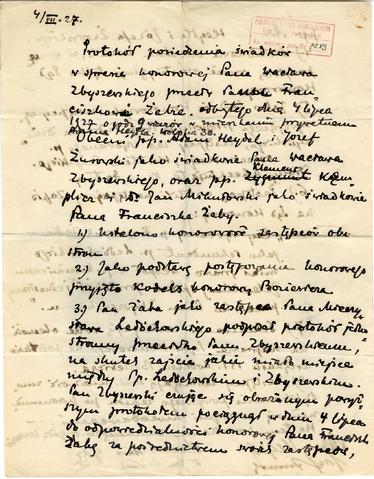 4/VII. 27.
Protokół posiedzenia świadków
w sprawie honorowej Pana Wacława
Zbyszewskiego przeciw Panu Fran
ciszkowi Żabie. odbytego dnia 4 lipca
1927 o godz. 9 wieczór w mieszkaniu prywatnem
Adama Heydla, Wolska 30.
Obecni: p.p. Adam Heydel i Józef
Żurowski jako świadkowie Pana Wacława
Klemens
Zbyszewskiego, oraz p.p. Zygmunt
plicz i Dr Jan jako świadkowie
Pana Franciszka Żaby.
1.) Ustalono honorowość zastępców obu
stron.
2.) Jako podstawę postępowania honorowego
przyjęto Kodeks honorowy Boziewicza
3.) Pan Żaba jako zastępca Pana Mieczy-
sława podpisał protokół jedno-
stronny przeciwko Panu Zbyszewskiemu,
na skutek zajścia jakie miało miejsce
między Pp. i Zbyszewskim.
Pan Zbyszewski czując się obrażonym powyż-
szym protokołem pociągnął w dniu 4 lipca
do odpowiedzialności honorowej Pana Franciszka
Żabę za pośrednictwem swoich zastępców,